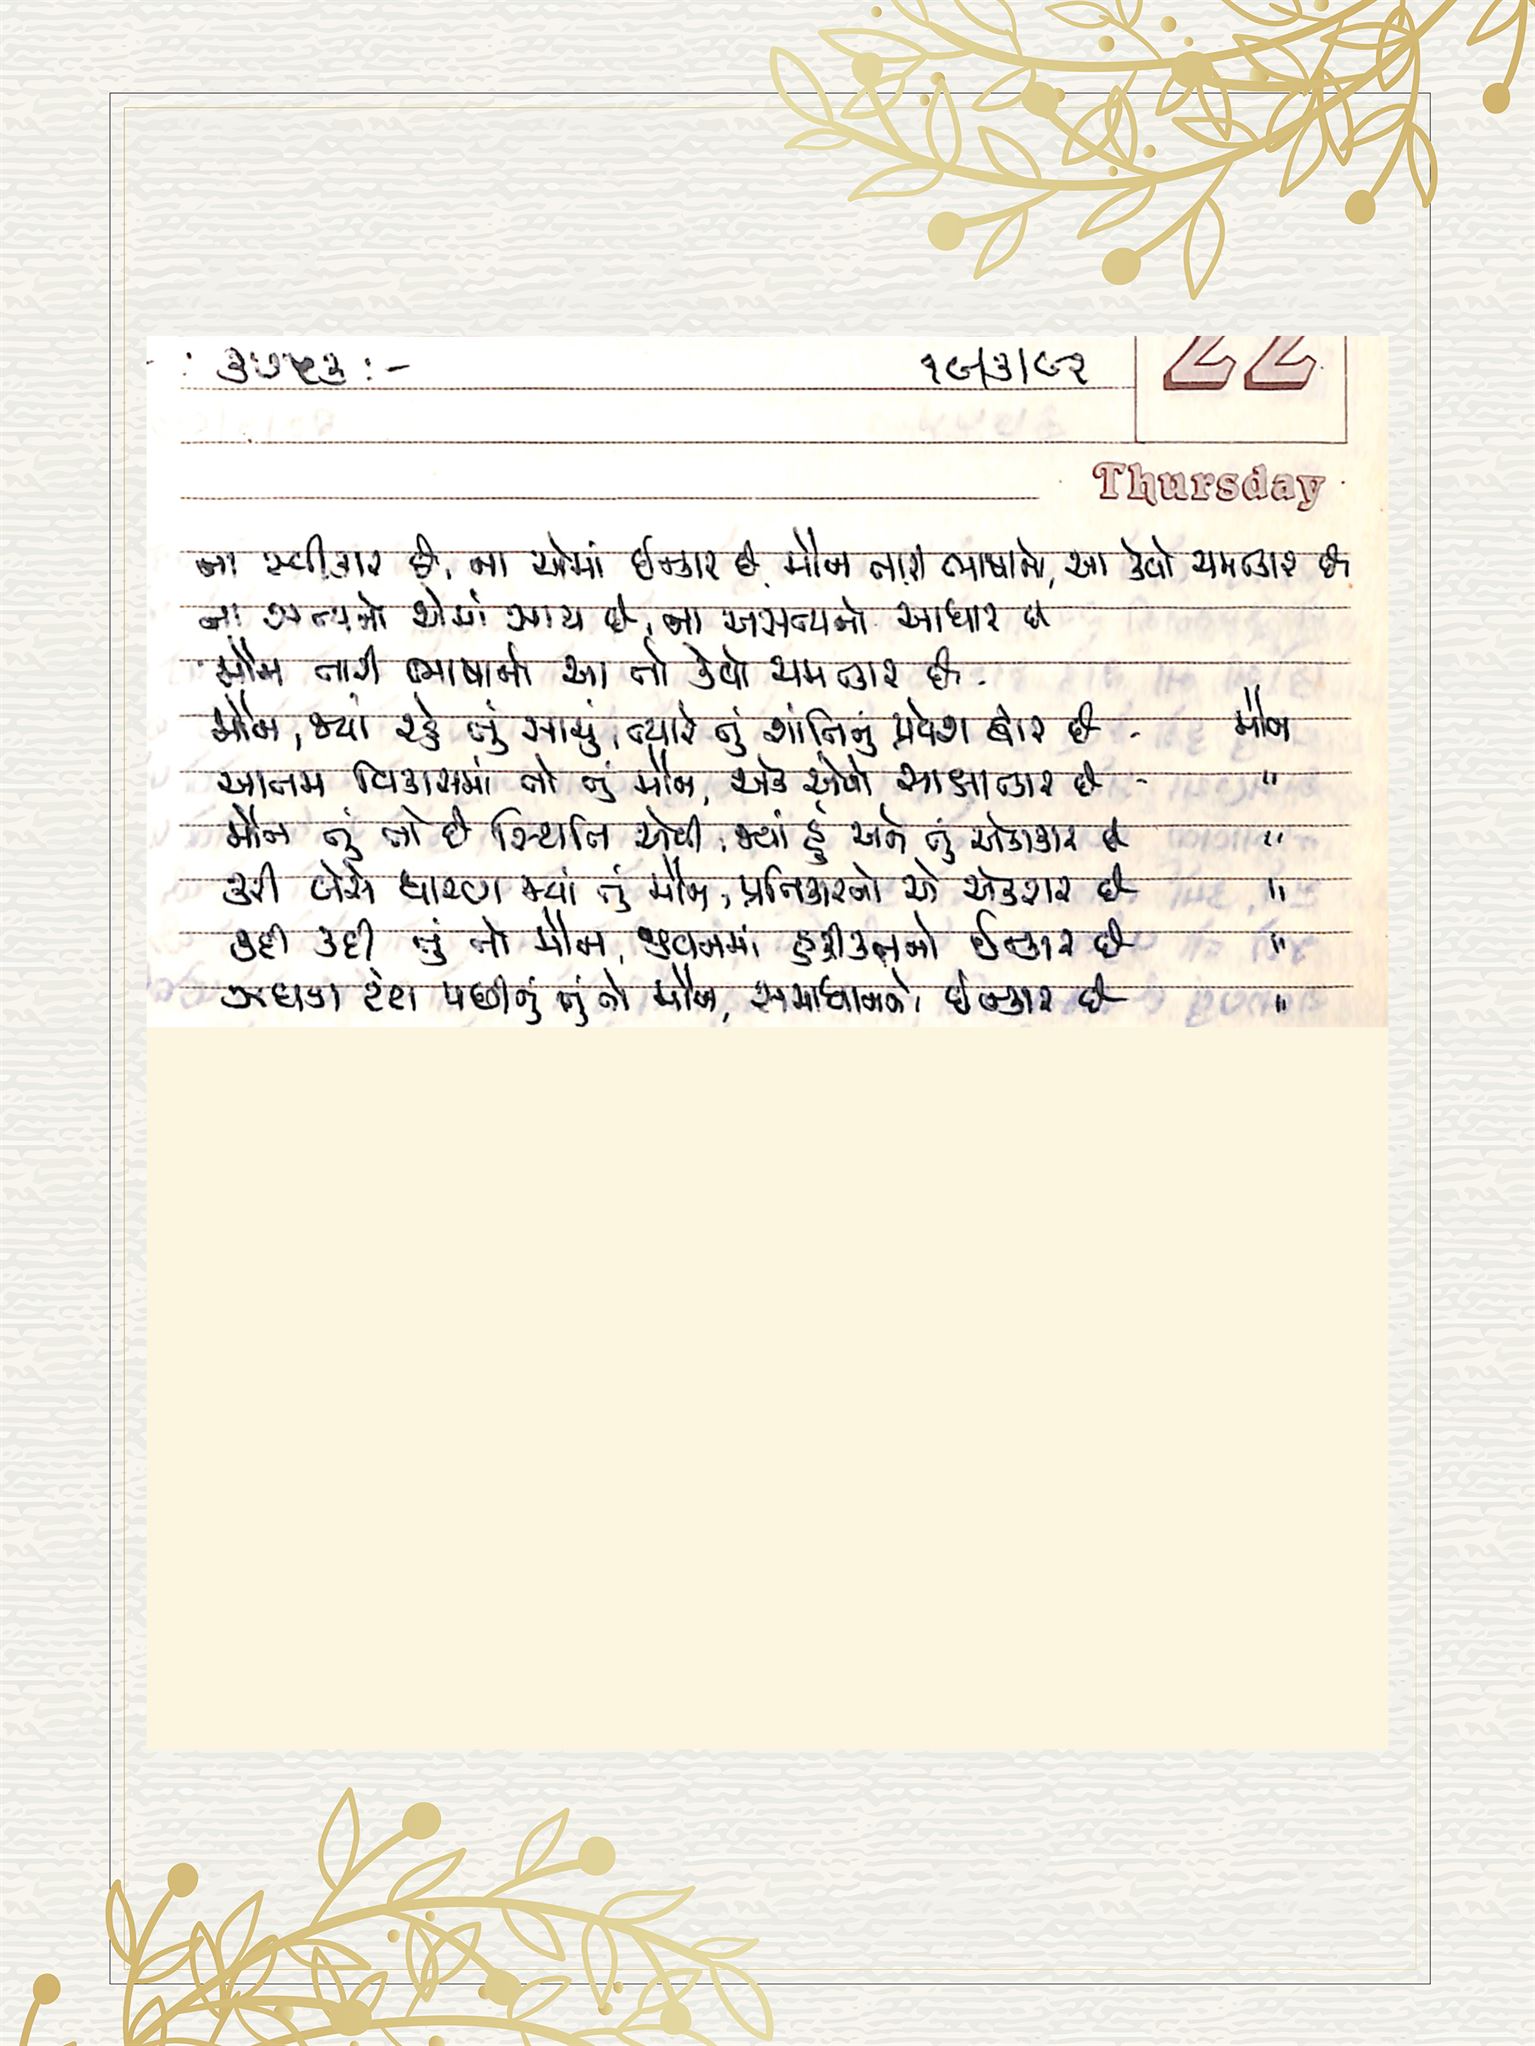 : ૩૭૫૩ :- ૧૯/૩/૯૨ 22
Thursday
ના સ્વીકાર છે, ના એમાં ઈન્કાર છે, મૌન તારી ભાષાનો, આ કેવો ચમત્કાર છે
ના સત્યનો એમાં સાથ છે, ના અસત્યનો આધાર છે
મૌન તારી ભાષાનો આ તો કેવો ચમત્કાર છે -
મૌન, જ્યાં રહે તું સાચું, ત્યારે તું શાંતિનું પ્રવેશ દ્વાર છે - મૌન
આતમ વિકાસમાં તો તું મૌન, એક એવો સાક્ષાત્કાર છે - "
મૌન તું તો છે સ્થિતિ એવી, જ્યાં હું અને તું એકાકાર છે "
કરી વેશ ધારણ જ્યાં તું મૌન, પ્રતિકારનો એ એકરાર છે "
કદી કદી તું તો મૌન, જીવનમાં હકીકતનો ઈન્કાર છે "
ઝઘડા પછીનું તું તો મૌન, સમાધાનનો ઈન્કાર છે "